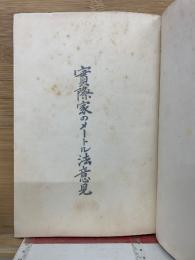 實際家のメートル法意見